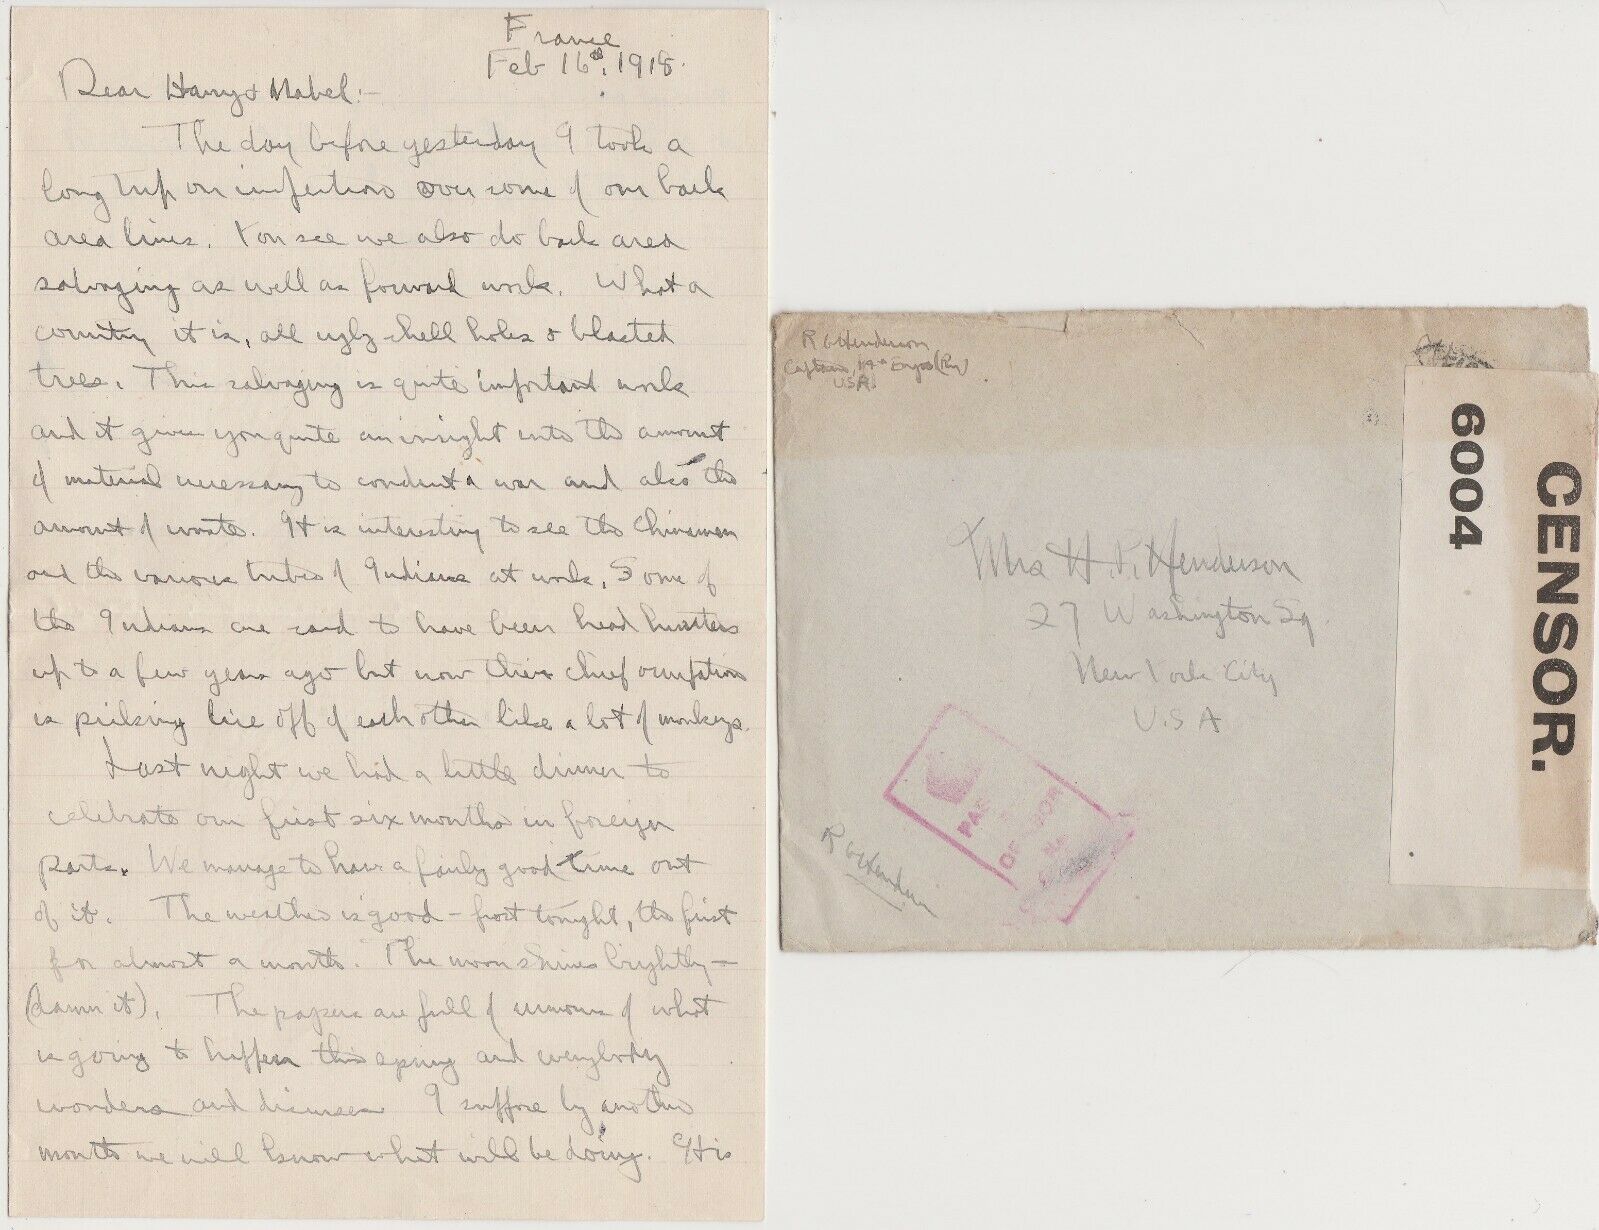 France
Feb 16th, 1918.
Dear Harry & Mabel:-
The day before yesterday I took a
long trip on inspection over some of our back
area lines. You see we also do back area
salvaging as well as forward work. What a
country it is, all ugly shell holes & blasted
trees. This salvaging is quite important work
and it gives you quite an insight into the amount
of material necessary to conduct a war and also the
amount of waste. It is interesting to see the Chinamen
and the various tribes of Indians at work. Some of
the Indians are said to have been head hunters
up to a few years ago but now their chief occupation
is picking lice off of each other like a lot of monkeys.
Last night we had a little dinner to
celebrate our first six months in foreign
parts. We manage to have a fairly good time out
of it. The weather is good - frost tonight, the first
for almost a month. The moon shines brightly -
(damn it). The papers are full of rumors of what
is going to happen this spring and everybody
wonders and discusses. I suppose by another
month we will know what will be doing. It is
R G Henderson
Captain, 14th Engrs (Ry)
USA
6004
CENSOR.
Mrs H. Henderson
27 Washington Sq.
New York City
U.S.A
PAS
OR
R G Henderson